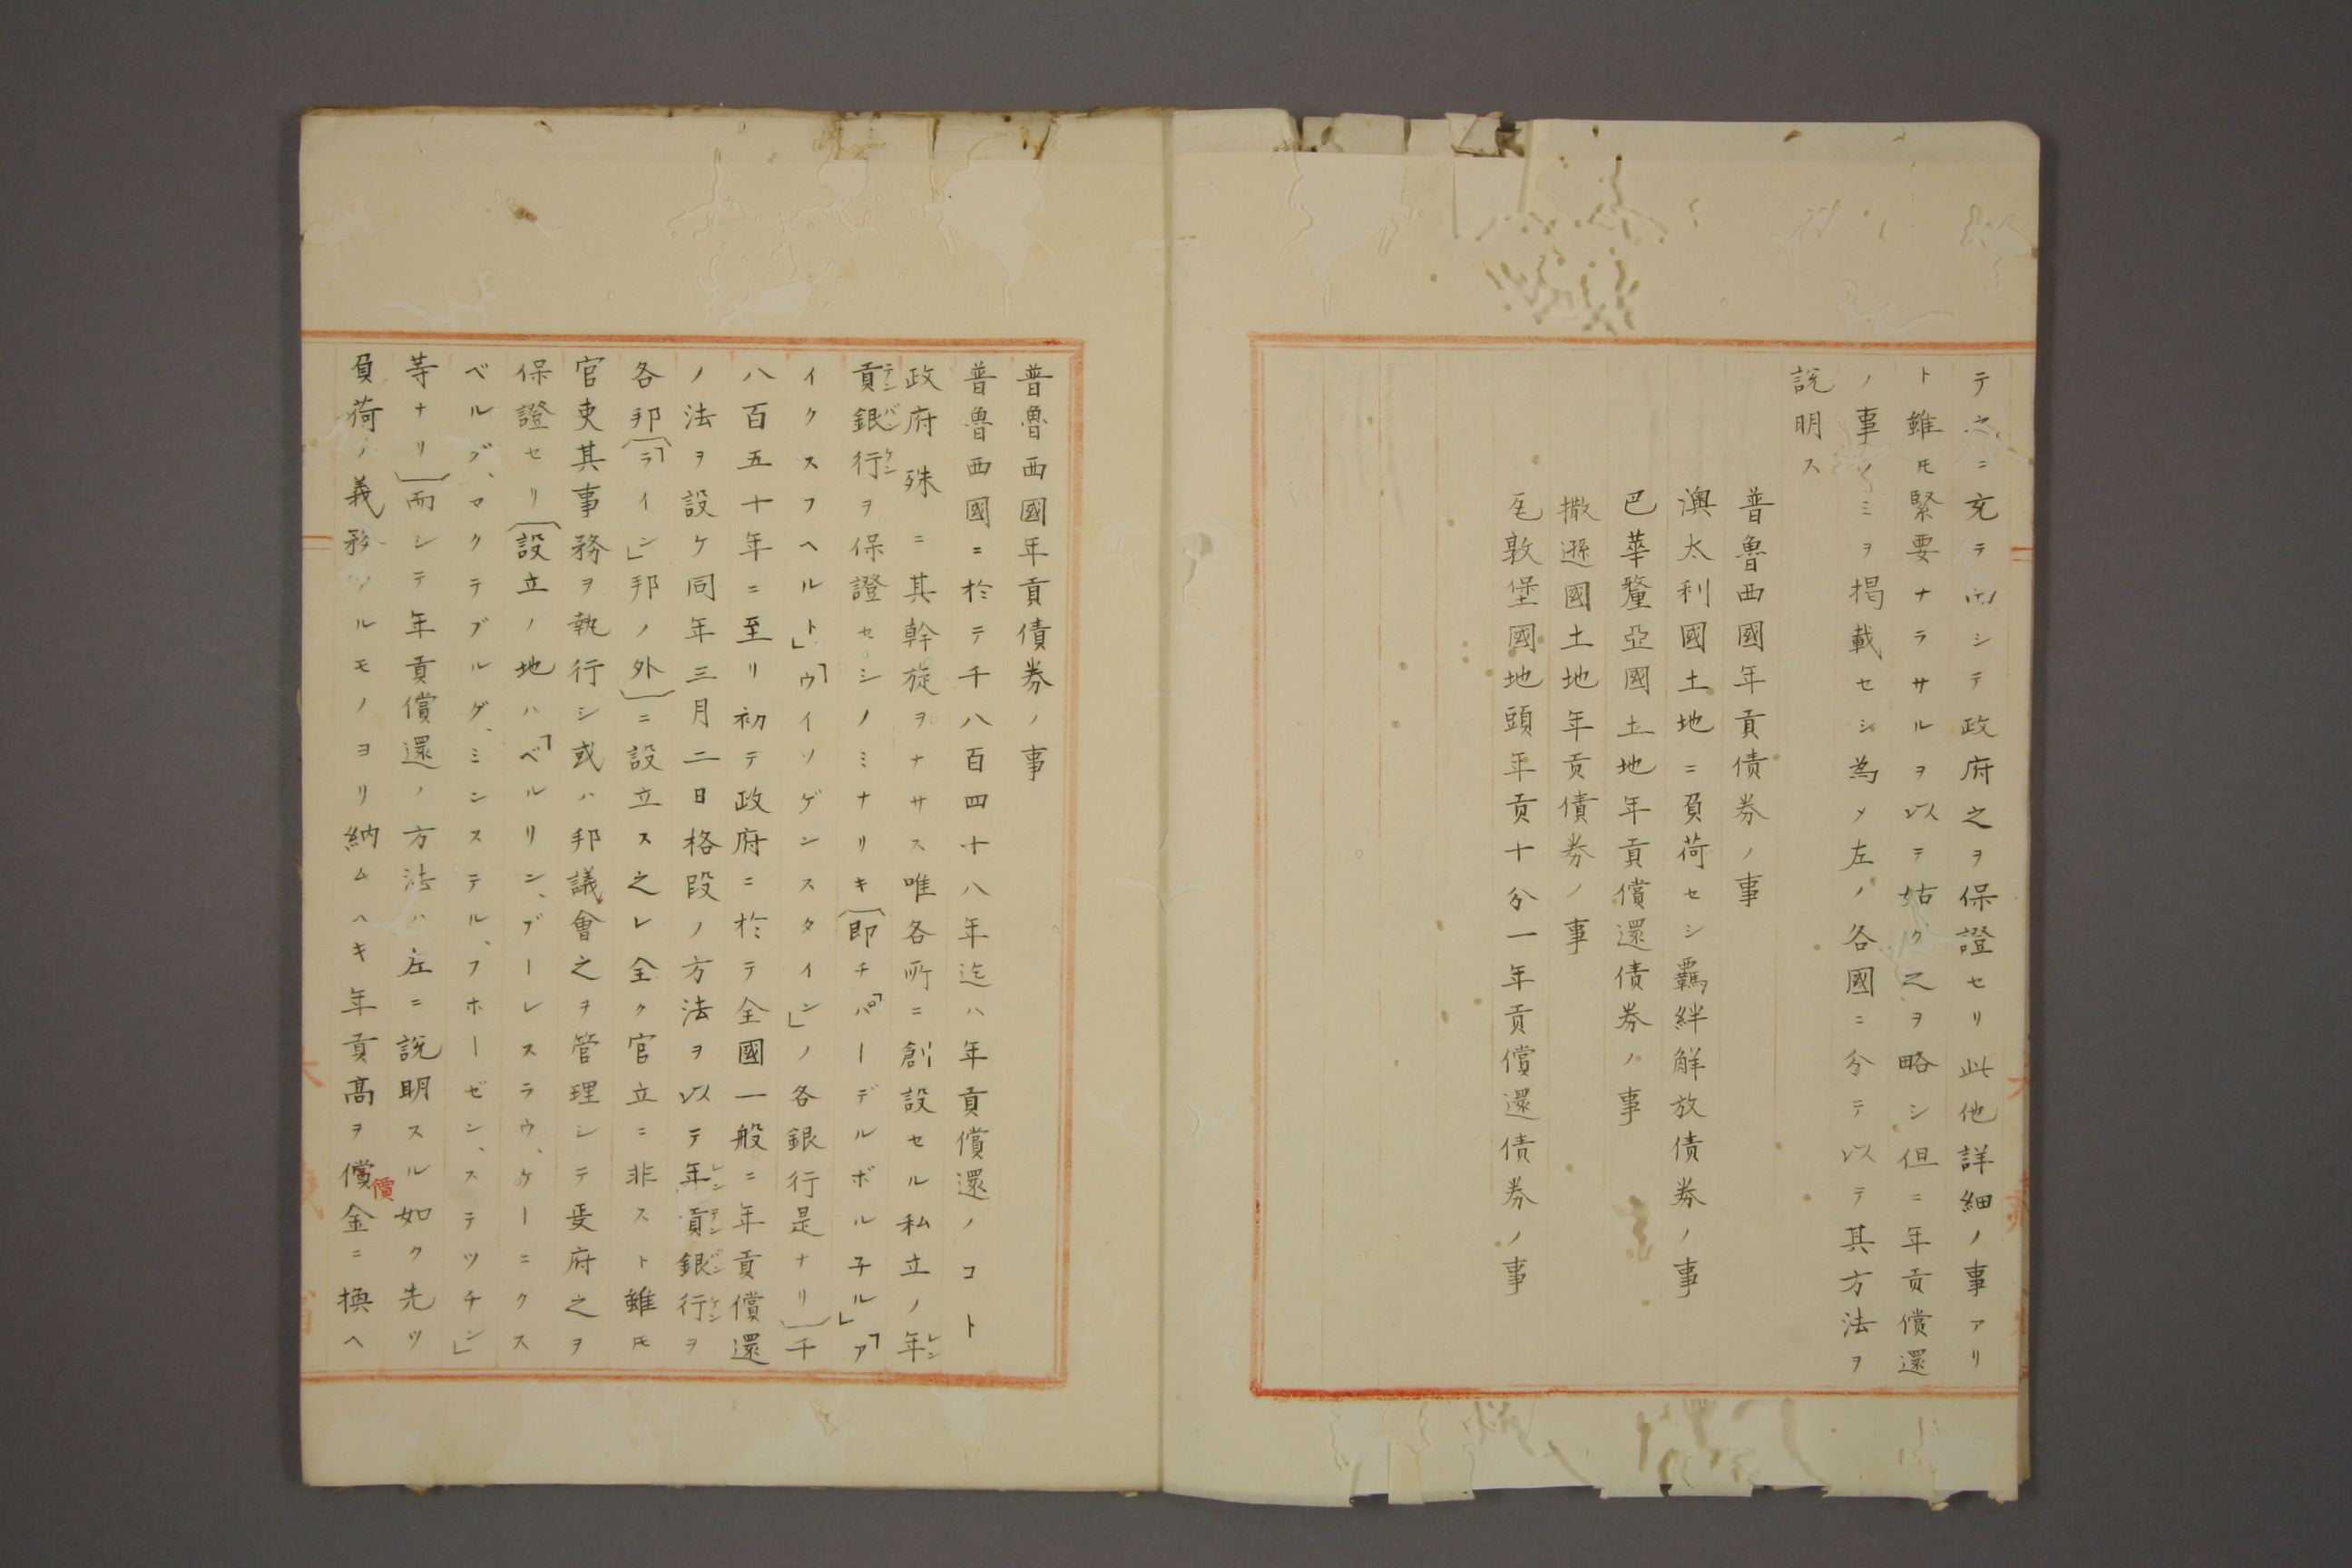 テ之ニ充テ而シテ政府之ヲ保證セリ此他詳細ノ事アリ
ト雖𪜈緊要ナラサルヲ以テ姑ク之ヲ略シ但ニ年貢償還
ノ事ノミヲ掲載セシ為メ左ノ各國ニ分テ以テ其方法ヲ
説明ス
普魯西國年貢債券ノ事
澳太利國土地ニ負荷セシ羈絆解放債券ノ事
巴華釐亞國土地年貢償還債券ノ事
撒遜國土地年貢債券ノ事
瓦敦堡國地頭年貢十分一年貢償還債券ノ事
普魯西國年貢債券ノ事
普魯西國ニ於テ千八百四十八年迄ハ年貢償還ノコト
政府殊ニ其幹旋ヲナサス唯各所ニ創設セル私立ノ年レン
貢テン銀バン行ケンヲ保證セシノミナリキ〔即チ「パーデルボル子ル」「ア
イクスフヘルト」「ウイソゲンスタイン」ノ各銀行是ナリ〕千
八百五十年ニ至リ初テ政府ニ於テ全國一般ニ年貢償還
ノ法ヲ設ケ同年三月二日格段ノ方法ヲ以テ年レン貢テン銀バン行ケンヲ
各邦〔「ライン」邦ノ外〕ニ設立ス之レ全ク官立ニ非スト雖𪜈
官吏其事務ヲ執行シ或ハ邦議會之ヲ管理シテ政府之ヲ
保證セリ〔設立ノ地ハ「ベルリン、ブーレスラウ、ケーニクス
ベルグ、マクテブルグ、ミンステル、フホーゼン、ステツチン」
等ナリ〕而シテ年貢償還ノ方法ハ左ニ説明スル如ク先ツ
負荷ノ義務アルモノヨリ納ムヘキ年貢髙ヲ償價金ニ換ヘ